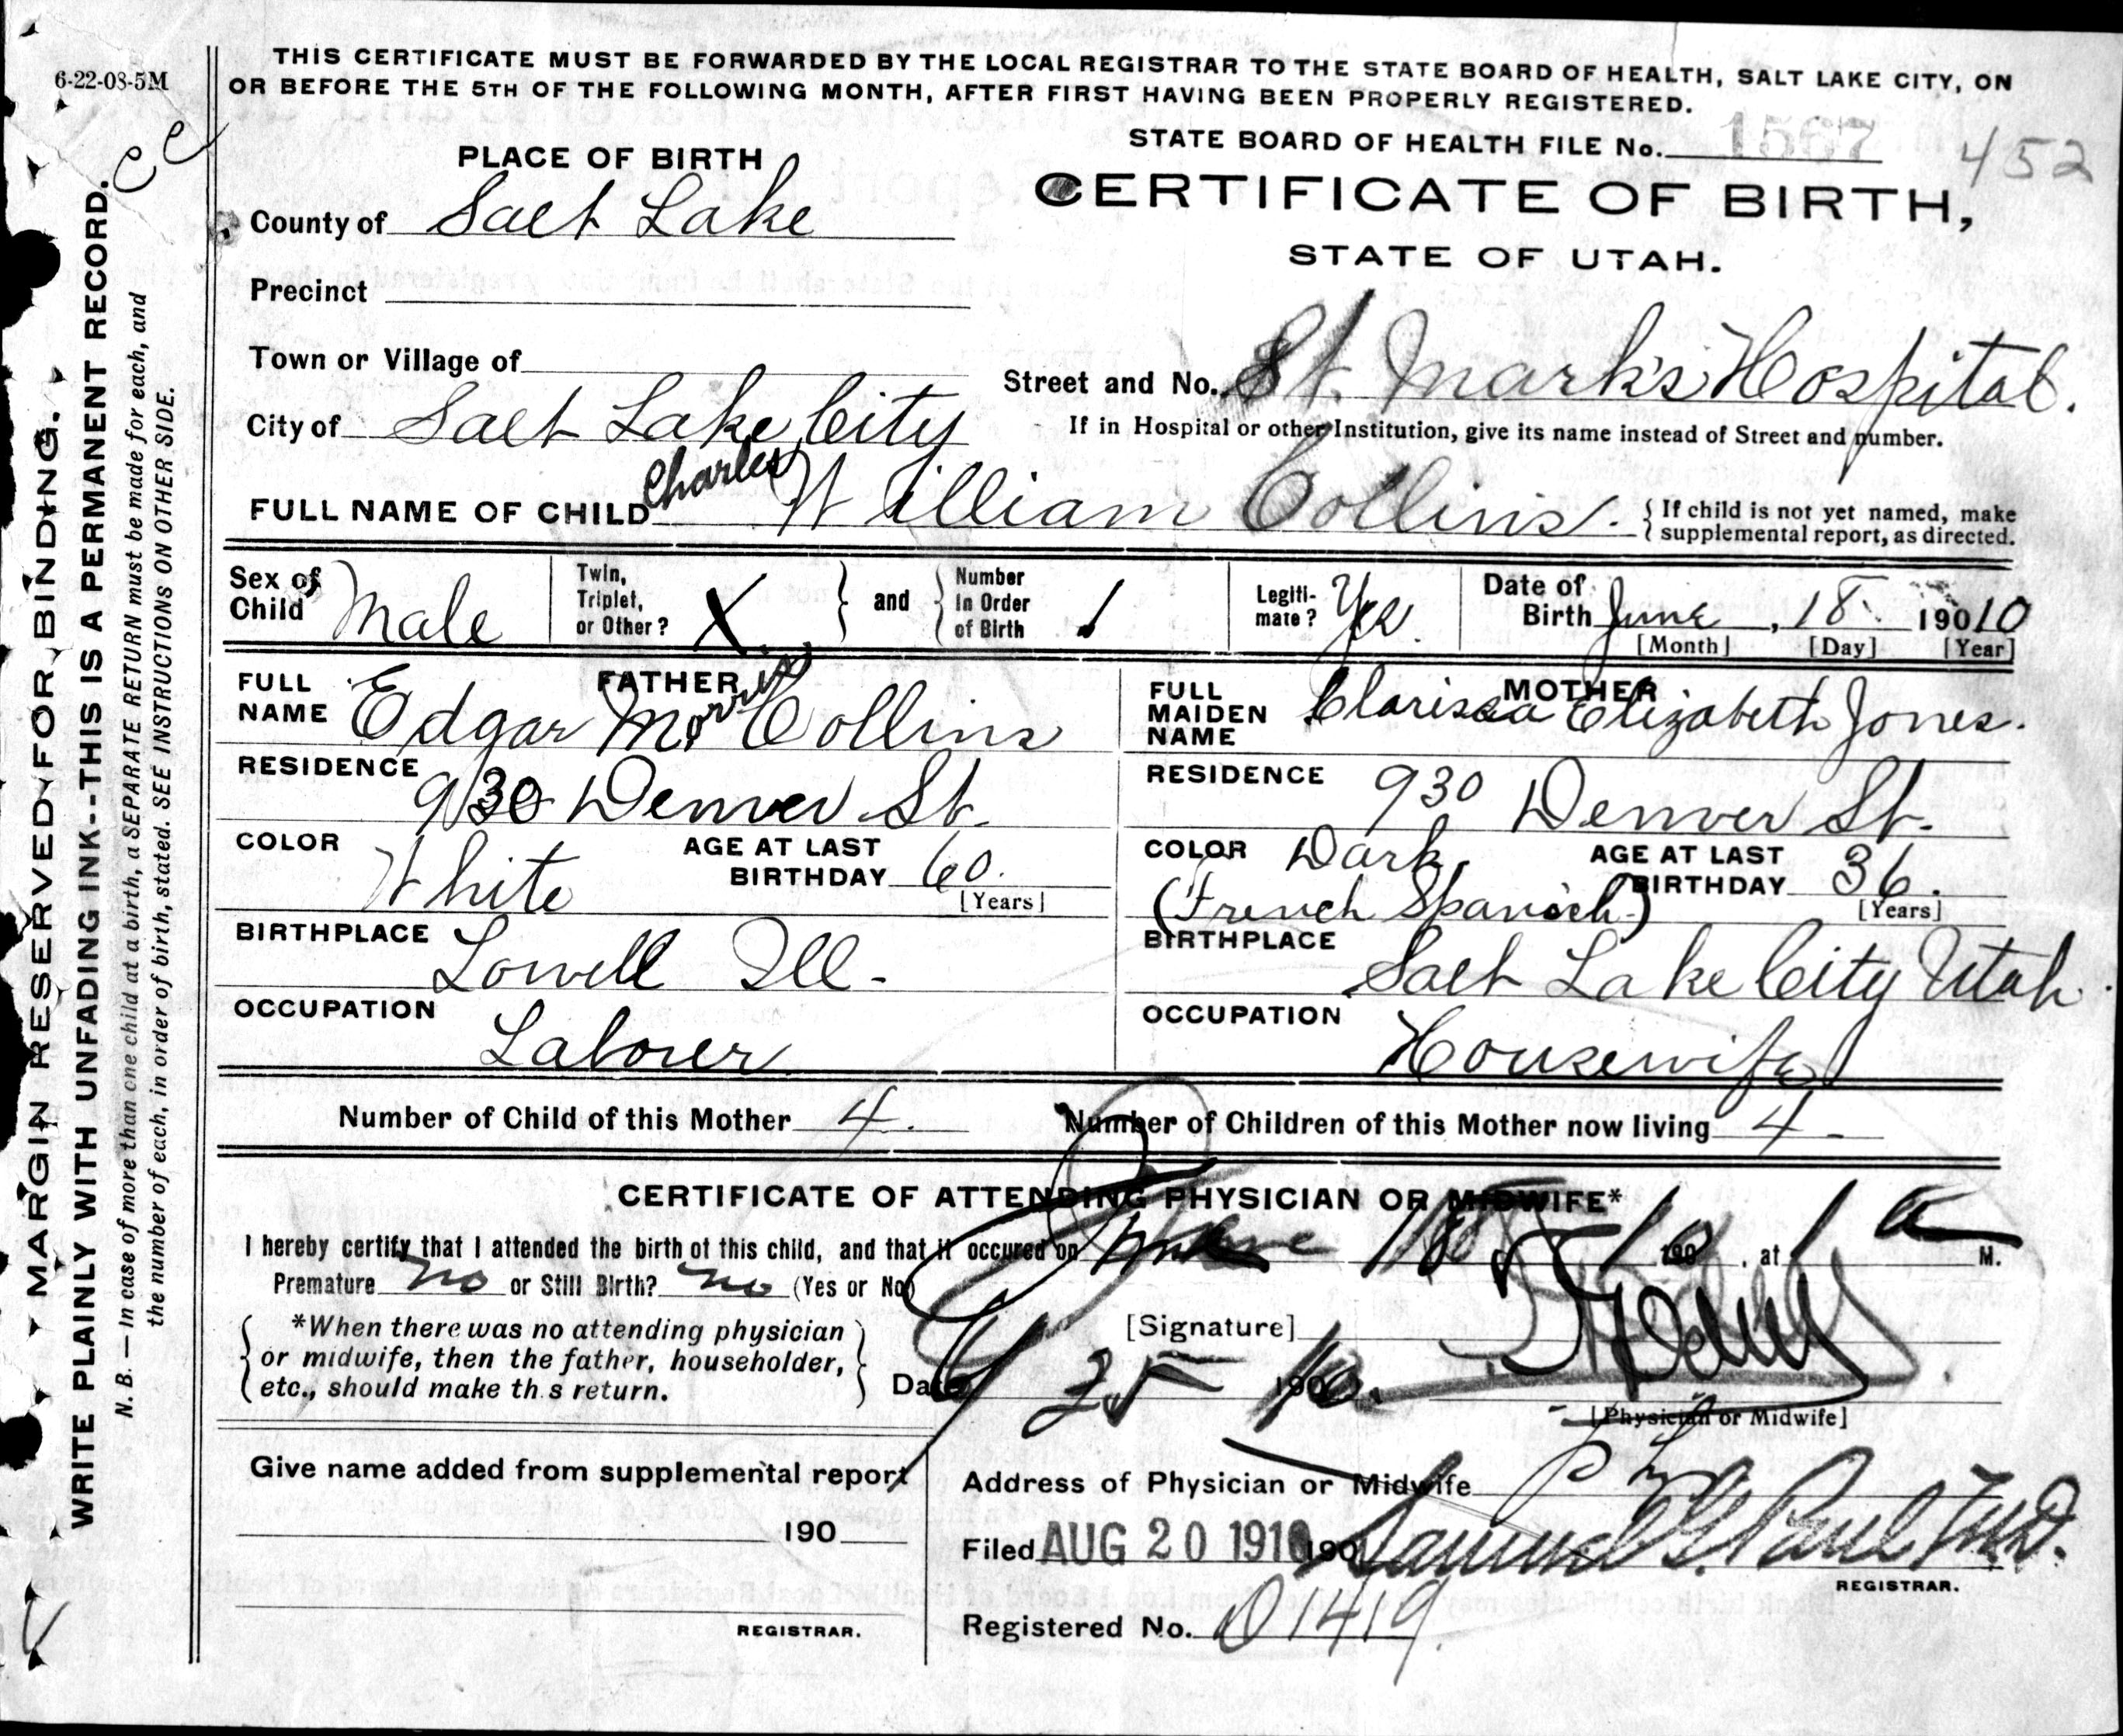 6-22-08-5M
THIS CERTIFICATE MUST BE FORWARDED BY THE LOCAL REGISTRAR TO THE STATE BOARD OF HEALTH, SALT LAKE CITY, ON
OR BEFORE THE 5TH OF THE FOLLOWING MONTH, AFTER FIRST HAVING BEEN PROPERLY REGISTERED.
STATE BOARD OF HEALTH FILE No. 1567 452
CERTIFICATE OF BIRTH,
STATE OF UTAH.
PLACE OF BIRTH
County of Salt Lake
Precinct
Town or Village of
City of Salt Lake City
Street and No. St. Mark's Hospital.
If in Hospital or other Institution, give its name instead of Street and number.
FULL NAME OF CHILD Charles William Collins.
{ If child is not yet named, make
supplemental report, as directed.
Sex of Child Male
Twin, Triplet, or Other? X
and
Number in Order of Birth 1
Legitimate? Yes
Date of Birth June, 18. 190 10
[Month] [Day] [Year]
FATHER
FULL NAME Edgar Morris Collins
RESIDENCE 930 Denver St.
COLOR White
AGE AT LAST BIRTHDAY 60.
[Years]
BIRTHPLACE Lowell Ill-
OCCUPATION Laborer
MOTHER
FULL MAIDEN NAME Clarissa Elizabeth Jones.
RESIDENCE 930 Denver St.
COLOR Dark, (French Spanish)
AGE AT LAST BIRTHDAY 36.
[Years]
BIRTHPLACE Salt Lake City Utah
OCCUPATION Housewife
Number of Child of this Mother 4.
Number of Children of this Mother now living 4-
CERTIFICATE OF ATTENDING PHYSICIAN OR MIDWIFE*
I hereby certify that I attended the birth of this child, and that it occured on June 18 10 190 , at 1 a M.
Premature no or Still Birth? no (Yes or No)
*When there was no attending physician
or midwife, then the father, householder,
etc., should make th s return.
[Signature]
Date 25 190
[Physician or Midwife]
Give name added from supplemental report
190
REGISTRAR.
Address of Physician or Midwife
Filed AUG 20 1910 190 Samuel G. Paul M.D.
REGISTRAR.
Registered No. 01419.
MARGIN RESERVED FOR BINDING.
WRITE PLAINLY WITH UNFADING INK--THIS IS A PERMANENT RECORD.
N. B. — In case of more than one child at a birth, a SEPARATE RETURN must be made for each, and
the number of each, in order of birth, stated. SEE INSTRUCTIONS ON OTHER SIDE.